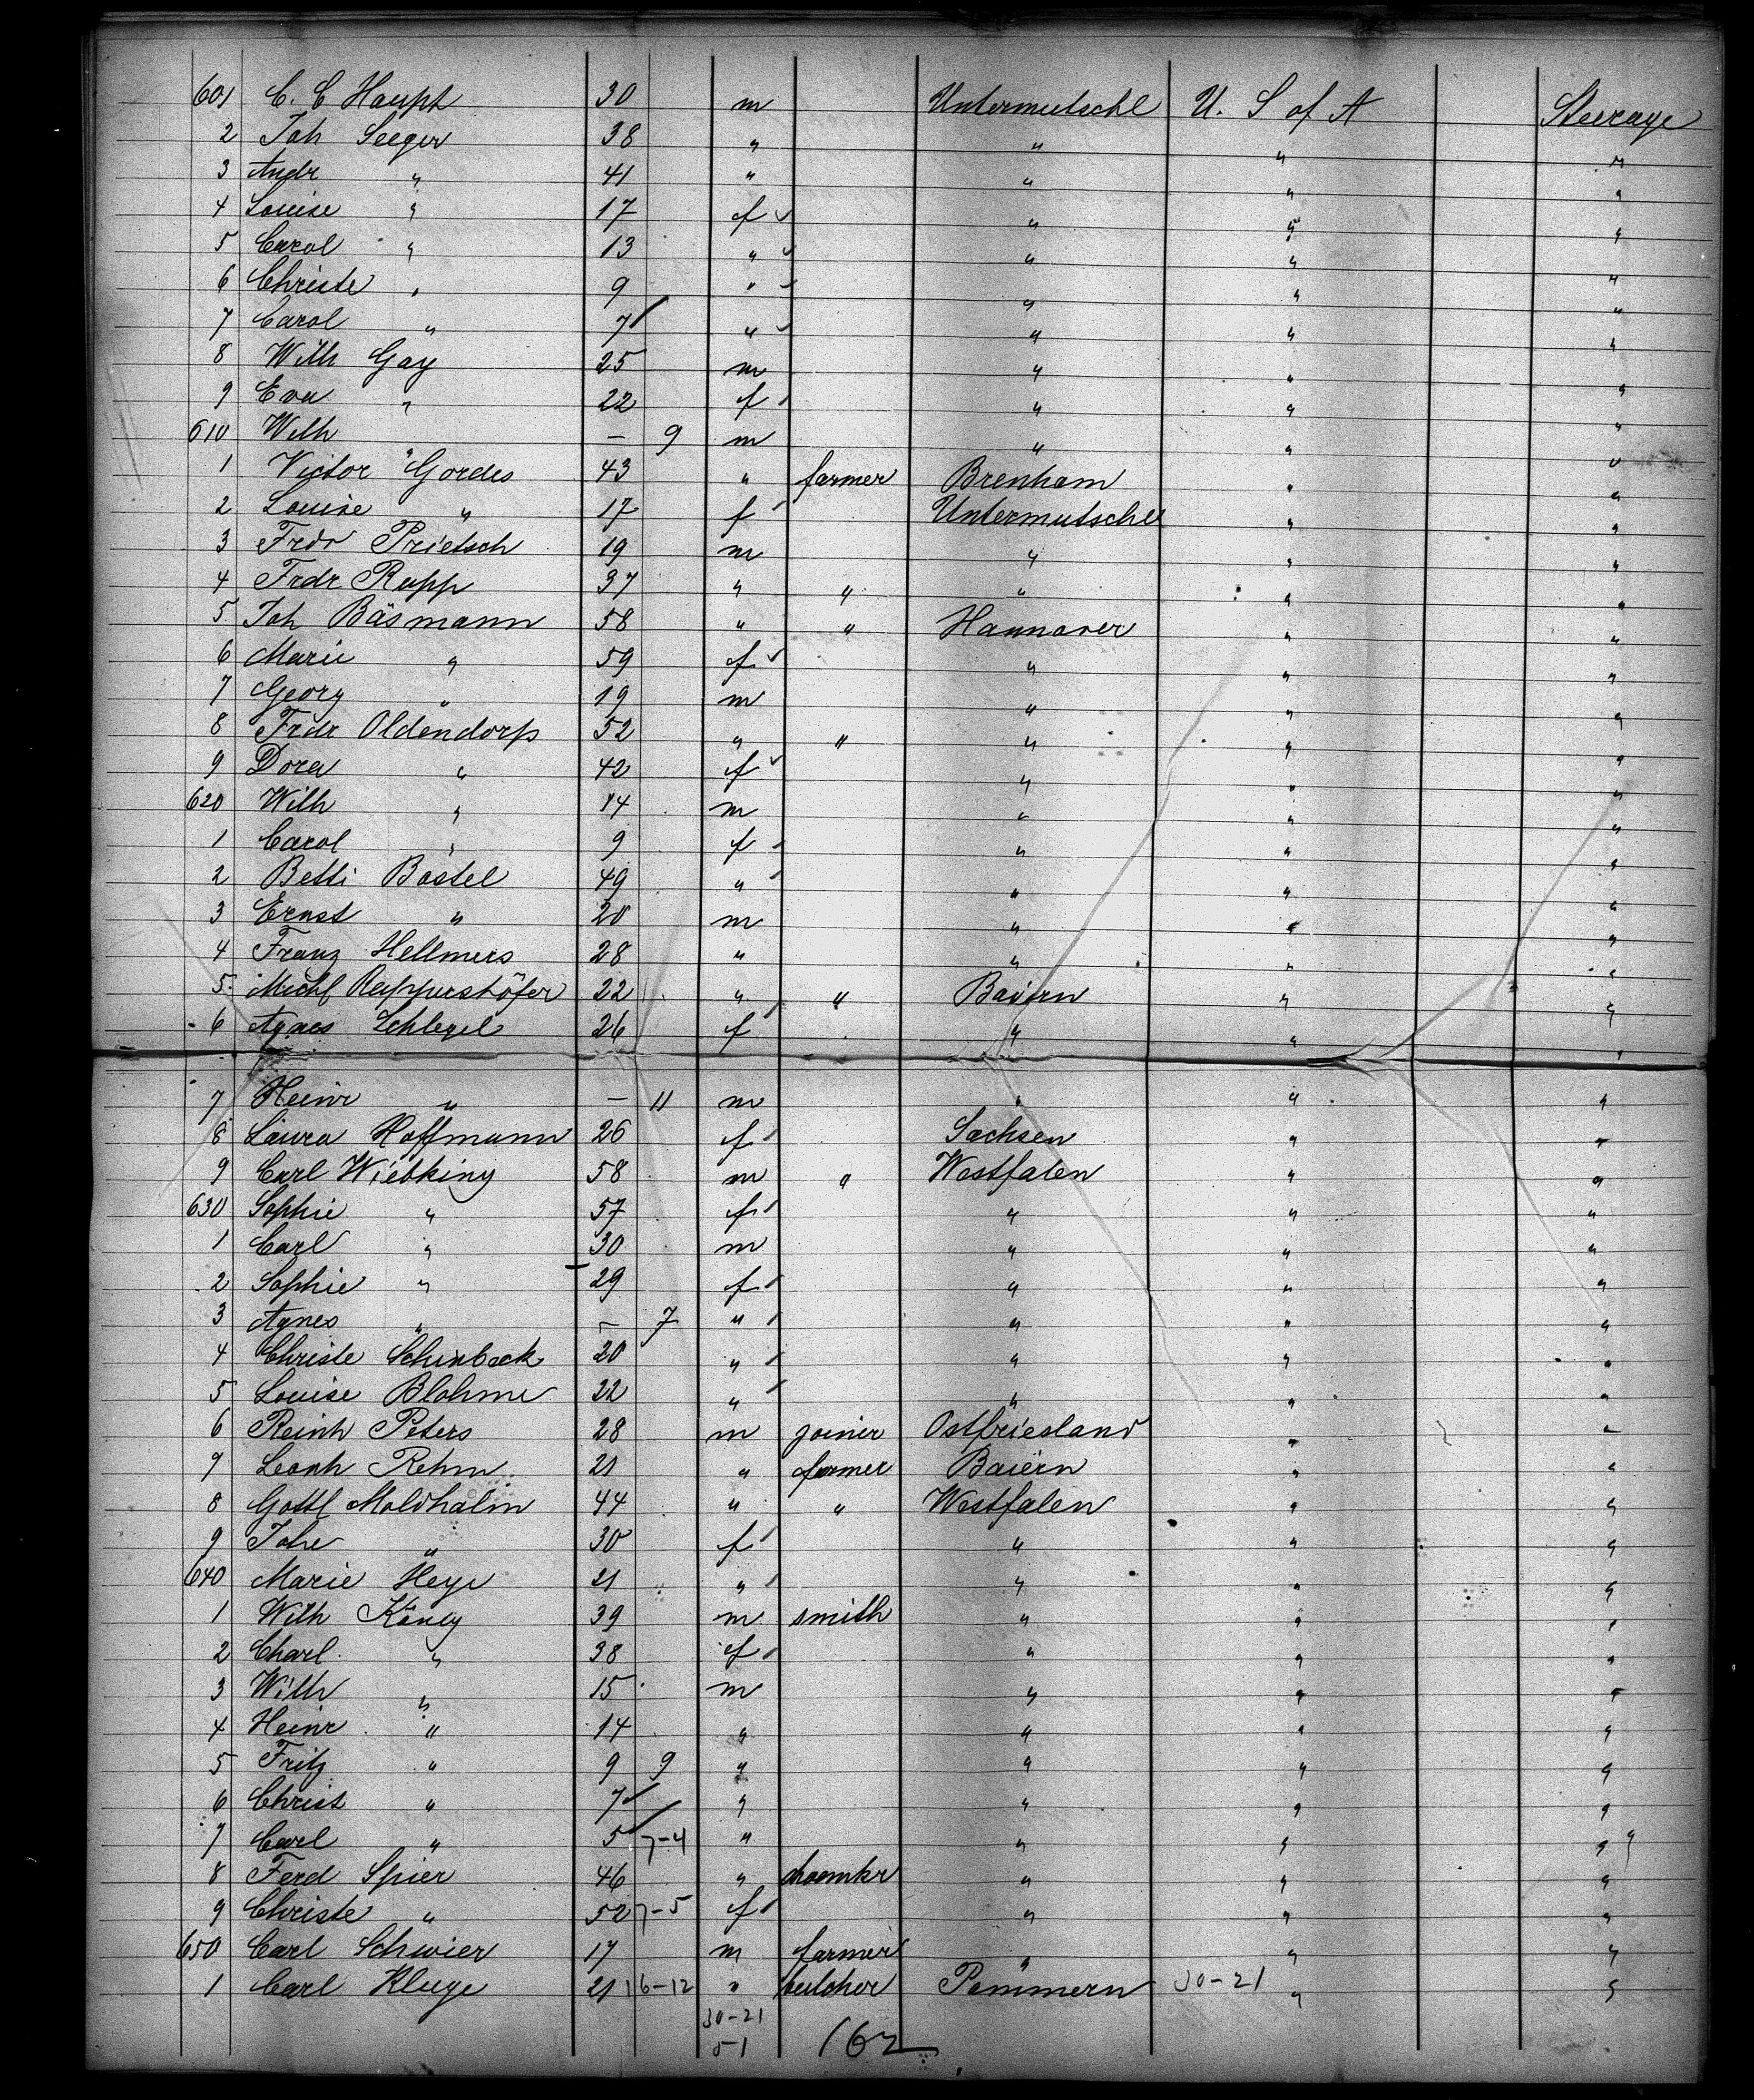 601 C. C Haupt 30 m Untermutschl U. S of A Steerage
2 Joh Seeger 38 " " " "
3 Andr " 41 " " " "
4 Louise " 17 f " " "
5 Carol " 13 " " " "
6 Christe " 9 " " " "
7 Carol " 7 " " " "
8 Wilh Gay 25 m " " "
9 Eva " 22 f " " "
610 Wilh " — 9 m " " "
1 Victor Gordes 43 " farmer Brenham " "
2 Louise " 17 f Untermutschl " "
3 Frdr Prietsch 19 m " " "
4 Frdr Rapp 37 " " " " "
5 Joh Bäsmann 58 " " Hannover " "
6 Marie " 59 f " " "
7 Georg " 19 m " " "
8 Frdr Oldendorp 52 " " " " "
9 Dora " 42 f " " "
620 Wilh " 14 m " " "
1 Carol " 9 f " " "
2 Betti Bostel 49 " " " "
3 Ernst " 20 m " " "
4 Franz Hellmers 28 " " " "
5 Michl 22 " " Baiern " "
6 Agnes Schlegel 26 f " " "
7 Heinr " — 11 m " " "
8 Laura Hoffmann 26 f Sachsen " "
9 Carl Wiebking 58 m " Westfalen " "
630 Sophie " 57 f " " "
1 Carl " 30 m " " "
2 Sophie " 29 f " " "
3 Agnes " — 7 " " " "
4 Christe Schinbeck 20 " " " "
5 Louise Blohme 22 " " " "
6 Reinh Peters 28 m joiner Ostfriesland " "
7 Leonh Rehm 21 " farmer Baiern " "
8 Gottl Moldhalm 44 " " Westfalen " "
9 Johe " 30 f " " "
640 Marie Heye 21 " " " "
1 Wilh König 39 m smith " " "
2 Charl. " 38 f " " "
3 Wilh " 15 m " " "
4 Heinr " 14 " " " "
5 Fritz " 9 9 " " " "
6 Christ " 7 " " " "
7 Carl " 5 7-4 " " " "
8 Ferd Spier 46 " shoemkr " " "
9 Christe " 52 7-5 f " " "
650 Carl Schwier 17 m farmer " " "
1 Carl Kluge 21 16-12 " butcher Pommern 30-21 " "
30-21
51 162